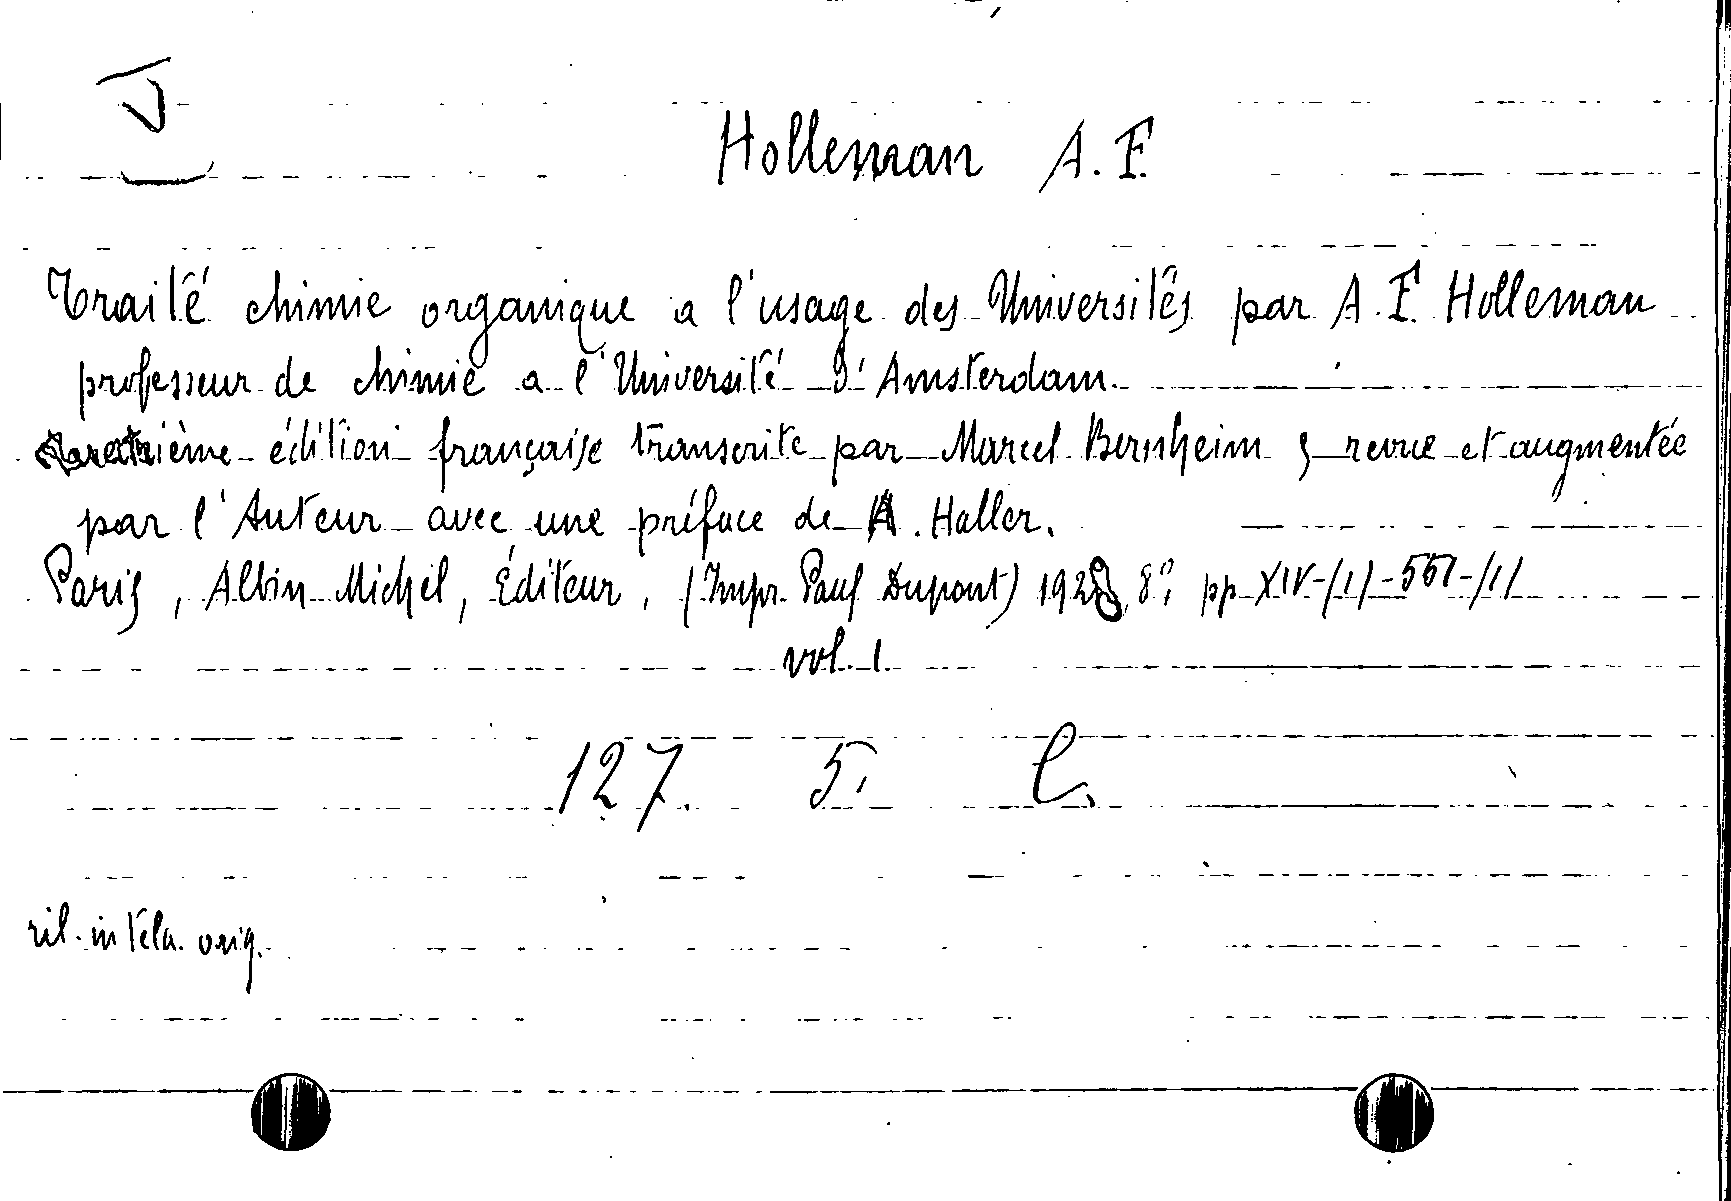 Holleman A. F.
Traité chimie organique a l'usage des Universités par A. F. Holleman
professeur de chimie a l'Université d'Amsterdam.
édition française transcrite par Marcel Bernheim, revue et augmentée
par l'Auteur avec une préface de A. Haller.
Paris, Albin Michel, Éditeur, (Impr. Paul Dupont) 1928, 8°, pp XIV-/1/-551-/1/
vol. 1.
127. 5. C.
ril. in tela orig.